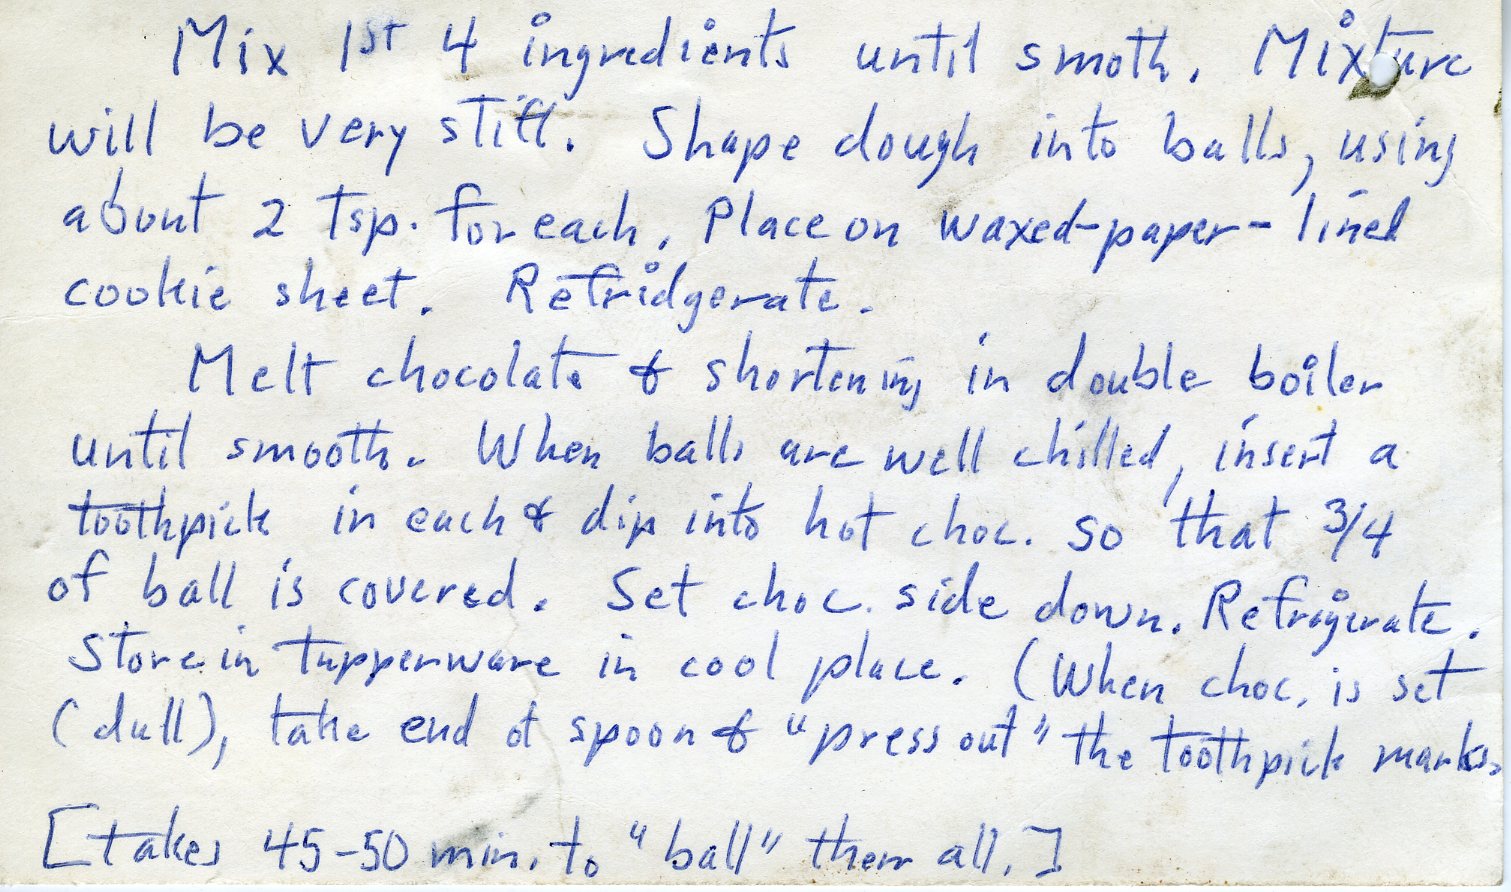 Mix 1st 4 ingredients until smoth. Mixture
will be very stiff. Shape dough into balls, using
about 2 tsp. for each. Place on waxed-paper-lined
cookie sheet. Refridgerate.
Melt chocolate & shortening in double boiler
until smooth. When balls are well chilled, insert a
toothpick in each & dip into hot choc. so that 3/4
of ball is covered. Set choc. side down. Refrigerate.
Store in tupperware in cool place. (When choc. is set
(dull), take end of spoon & "press out" the toothpick marks.
[takes 45-50 min. to "ball" them all.]